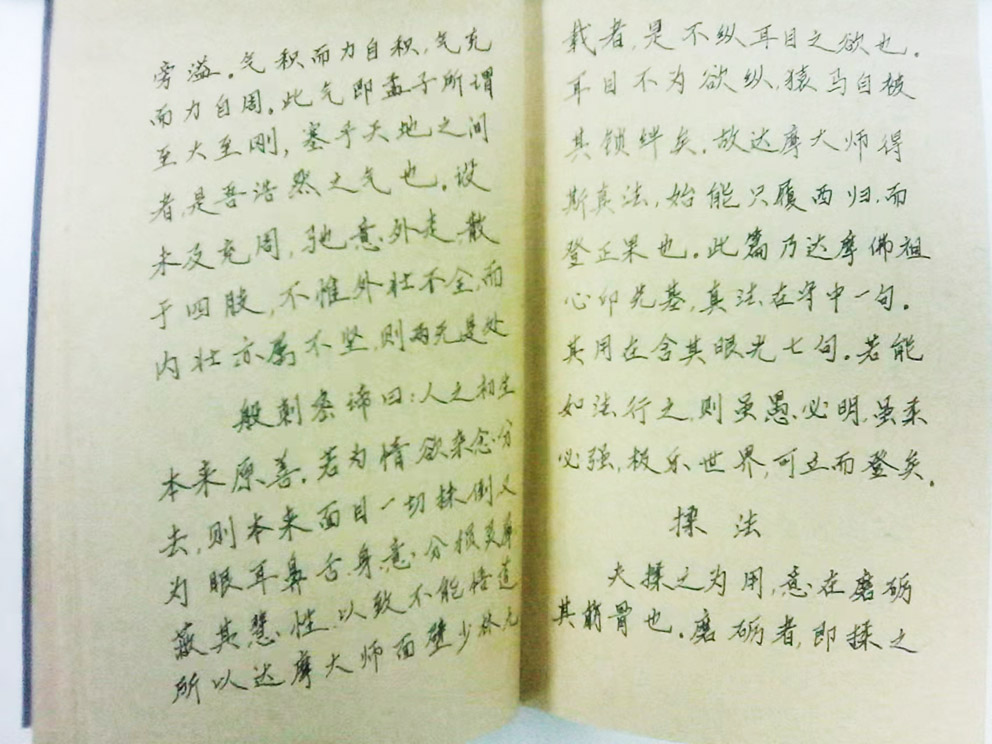 旁溢。气积而力自积,气充
而力自周。此气即孟子所谓
至大至刚,塞乎天地之间
者,是吾浩然之气也。设
未及充周,驰意外走,散
于四肢,不惟外壮不全,而
内壮亦属不坚,则两无是处
般刺密谛曰:人之初生
本来原善。若为情欲杂念分
去,则本来面目一切抹倒又
为眼耳鼻舌身意分损灵犀
蔽其慧性,以致不能悟道
所以达摩大师面壁少林九
载者,是不纵耳目之欲也。
耳目不为欲纵,猿马自被
其锁绊矣。故达摩大师得
斯真法,始能只履西归,而
登正果也。此篇乃达摩佛祖
心印先基,真法在守中一句。
其用在含其眼光七句。若能
如法行之,则虽愚必明,虽柔
必强,极乐世界,可立而登矣。
揉法
夫揉之为用,意在磨砺
其筋骨也。磨砺者,即揉之